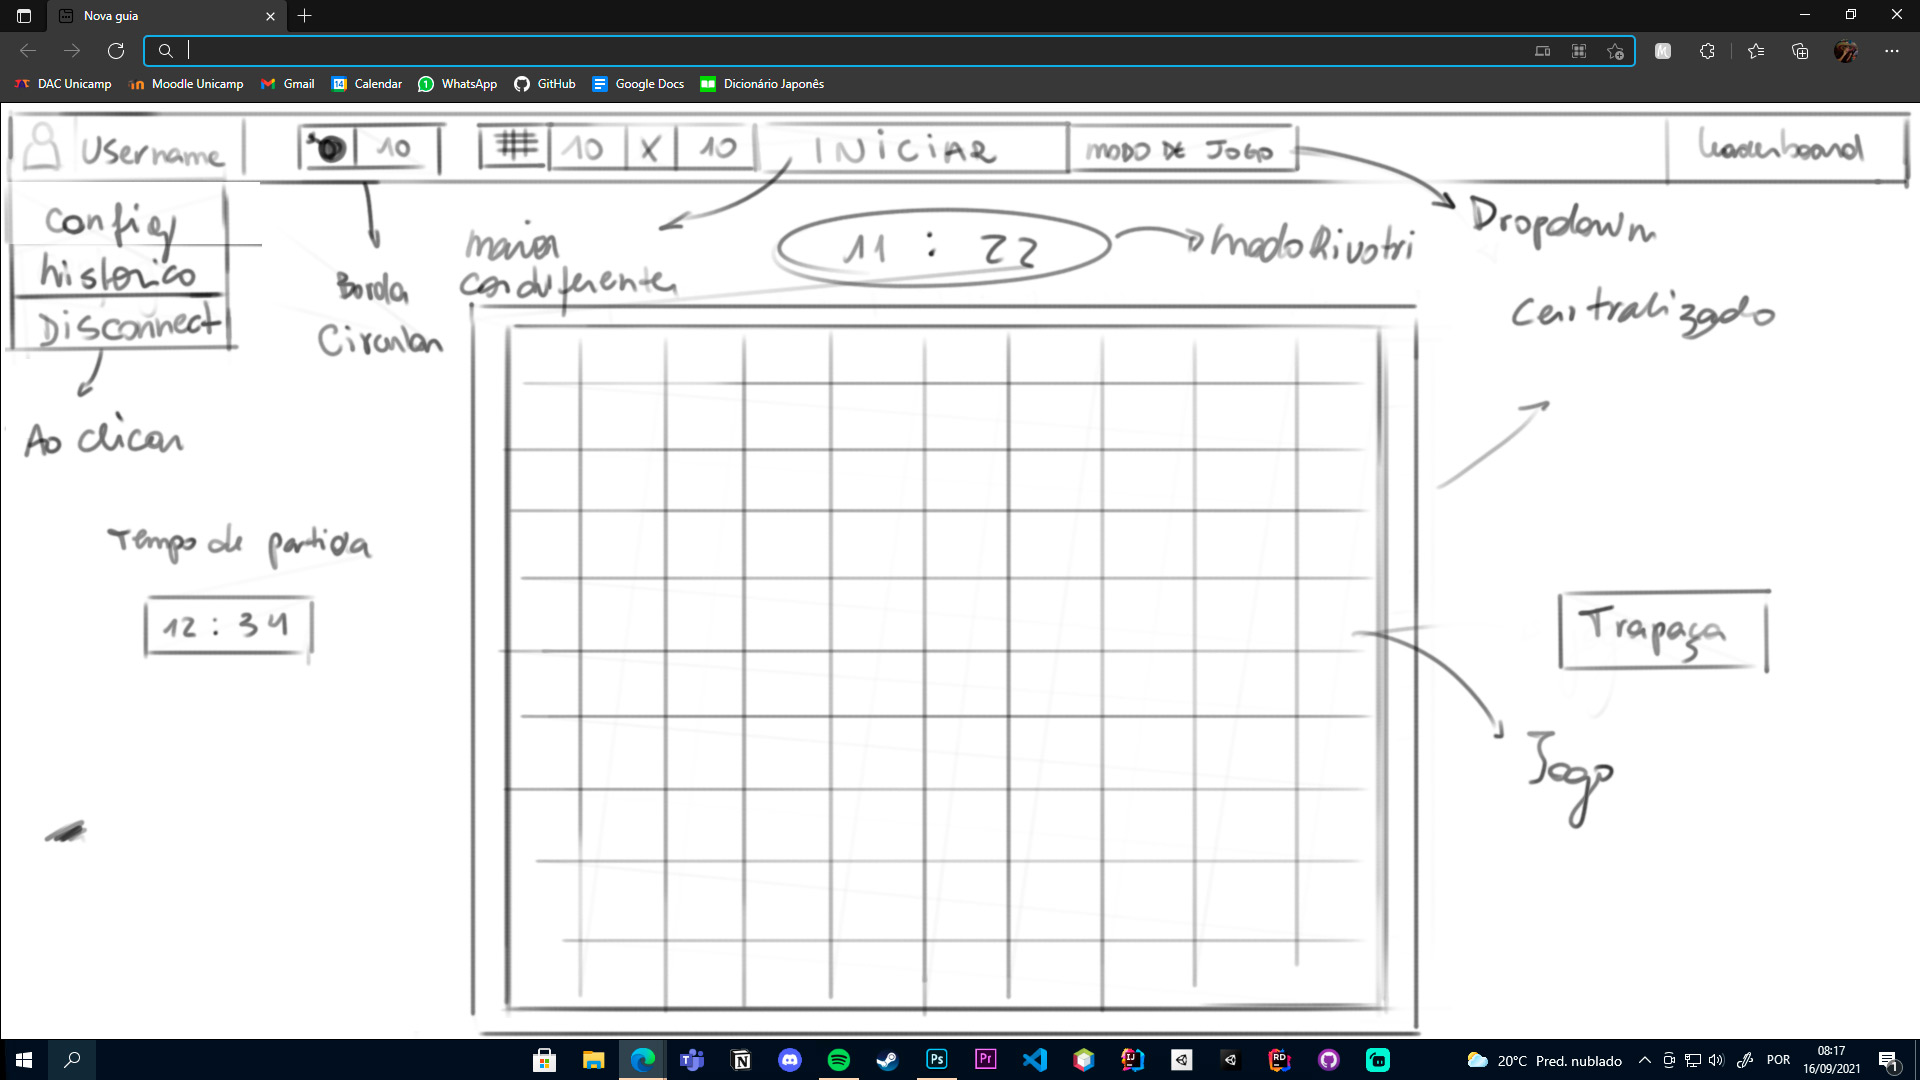 Nova guia
DAC Unicamp
Moodle Unicamp
Gmail
Calendar
WhatsApp
GitHub
Google Docs
Dicionário Japonês
Username
10
10 X 10
INICIAR
MODO DE JOGO
leaderboard
Config
historico
Disconnect
Ao clicar
Borda
Circular
maior
cor diferente
11 : 22
modo Rivotri
Dropdown
Centralizado
Tempo de partida
12 : 34
Trapaça
Jogo
20°C Pred. nublado
POR
08:17
16/09/2021